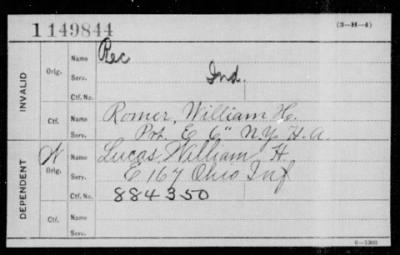 1149844 (3-H-4)
INVALID
Orig. Name Rec
Serv. Ind.
Ctf. No.
Ctf. Name Romer, William H.
Serv. Pvt. E 6" N.Y. H.A.
DEPENDENT
W Orig. Name Lucas, William H.
Serv. E 167 Ohio Inf
Ctf. No. 884350
Ctf. Name
Serv.
6-1301